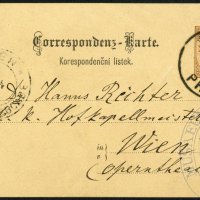 Correspondenz-Karte.
Korespondenční lístek.
Hanns Richter
k. k. Hofkapellmeister
in
Wien
Operntheater